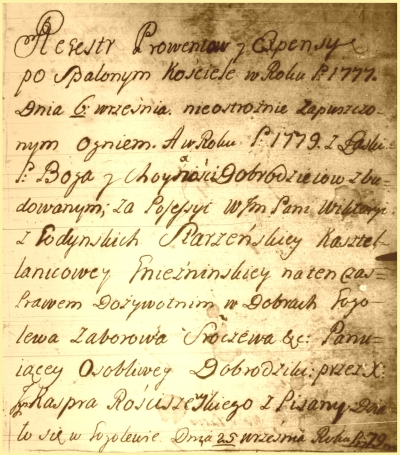 Regestr Prowentow y Expensy
po Spalonym Kościele w Roku P: 1777.
Dnia 6 września. nieostrożnie zapuszczo-
nym Ogniem. A w Roku P: 1779. z Łaski
P: Boga y Choyności Dobrodzieiow zbu-
dowanym, za Possessyi W Jm Pani Wiktoryi
z Łodynskich Starzeńskiey Kasztel-
lanicowey Gnieźninskiey na ten czas
Prawem Dożywotnim w Dobrach Gogo-
lewa Zaborowa Sroczewa &c: Panu-
iącey Osobliwey Dobrodziki: przez X:
Kaspra Rościszewskiego z Pisany. Działo
ło się w Gogolewie. Dnia 25 września Roku P: 79.